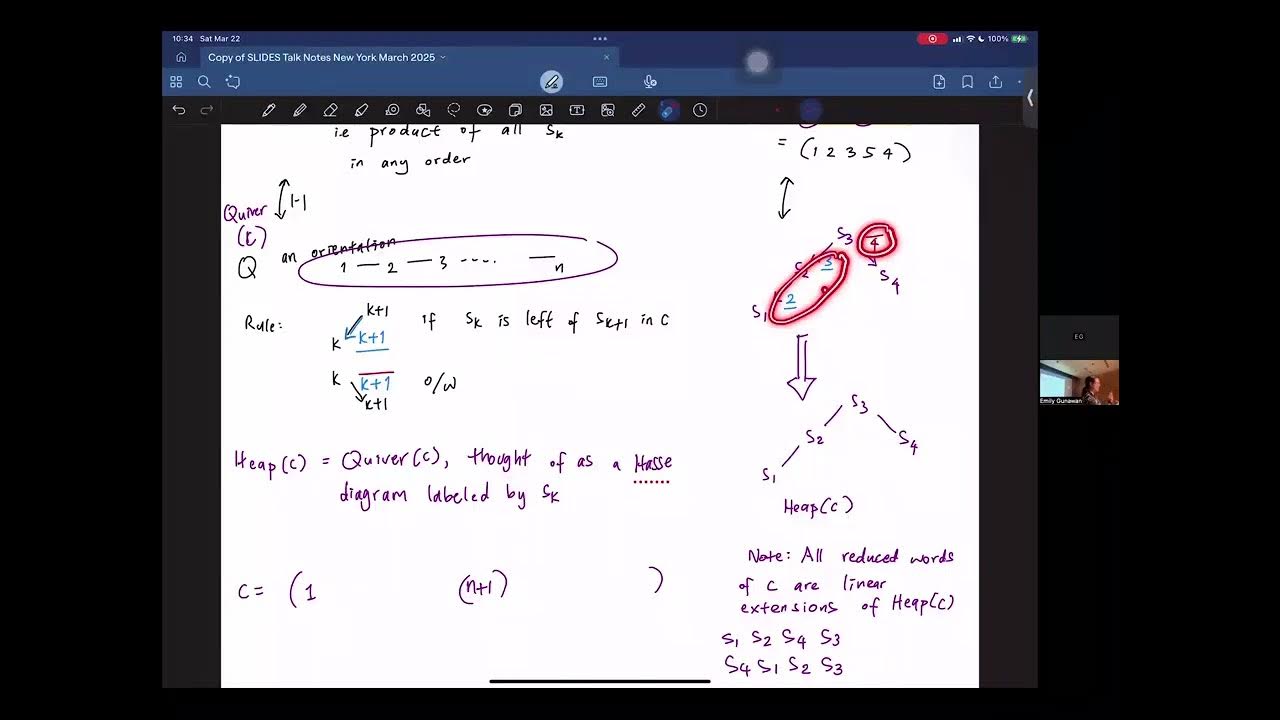 10:34 Sat Mar 22
100%
Copy of SLIDES Talk Notes New York March 2025
ie product of all Sk
in any order
1-1
Quiver
(c)
Q an orientation
1 — 2 — 3 .... — n
Rule:
k+1
k k+1
if Sk is left of Sk+1 in C
k k+1
k+1
o/w
Heap(c) = Quiver(c), thought of as a Hasse
diagram labeled by Sk
C = (1 (n+1) )
= (1 2 3 5 4)
S3 4
S2 3
S4
2
S1
S3
S2
S4
S1
Heap(c)
Note: All reduced words
of C are linear
extensions of Heap(c)
S1 S2 S4 S3
S4 S1 S2 S3
EG
Emily Gunawan